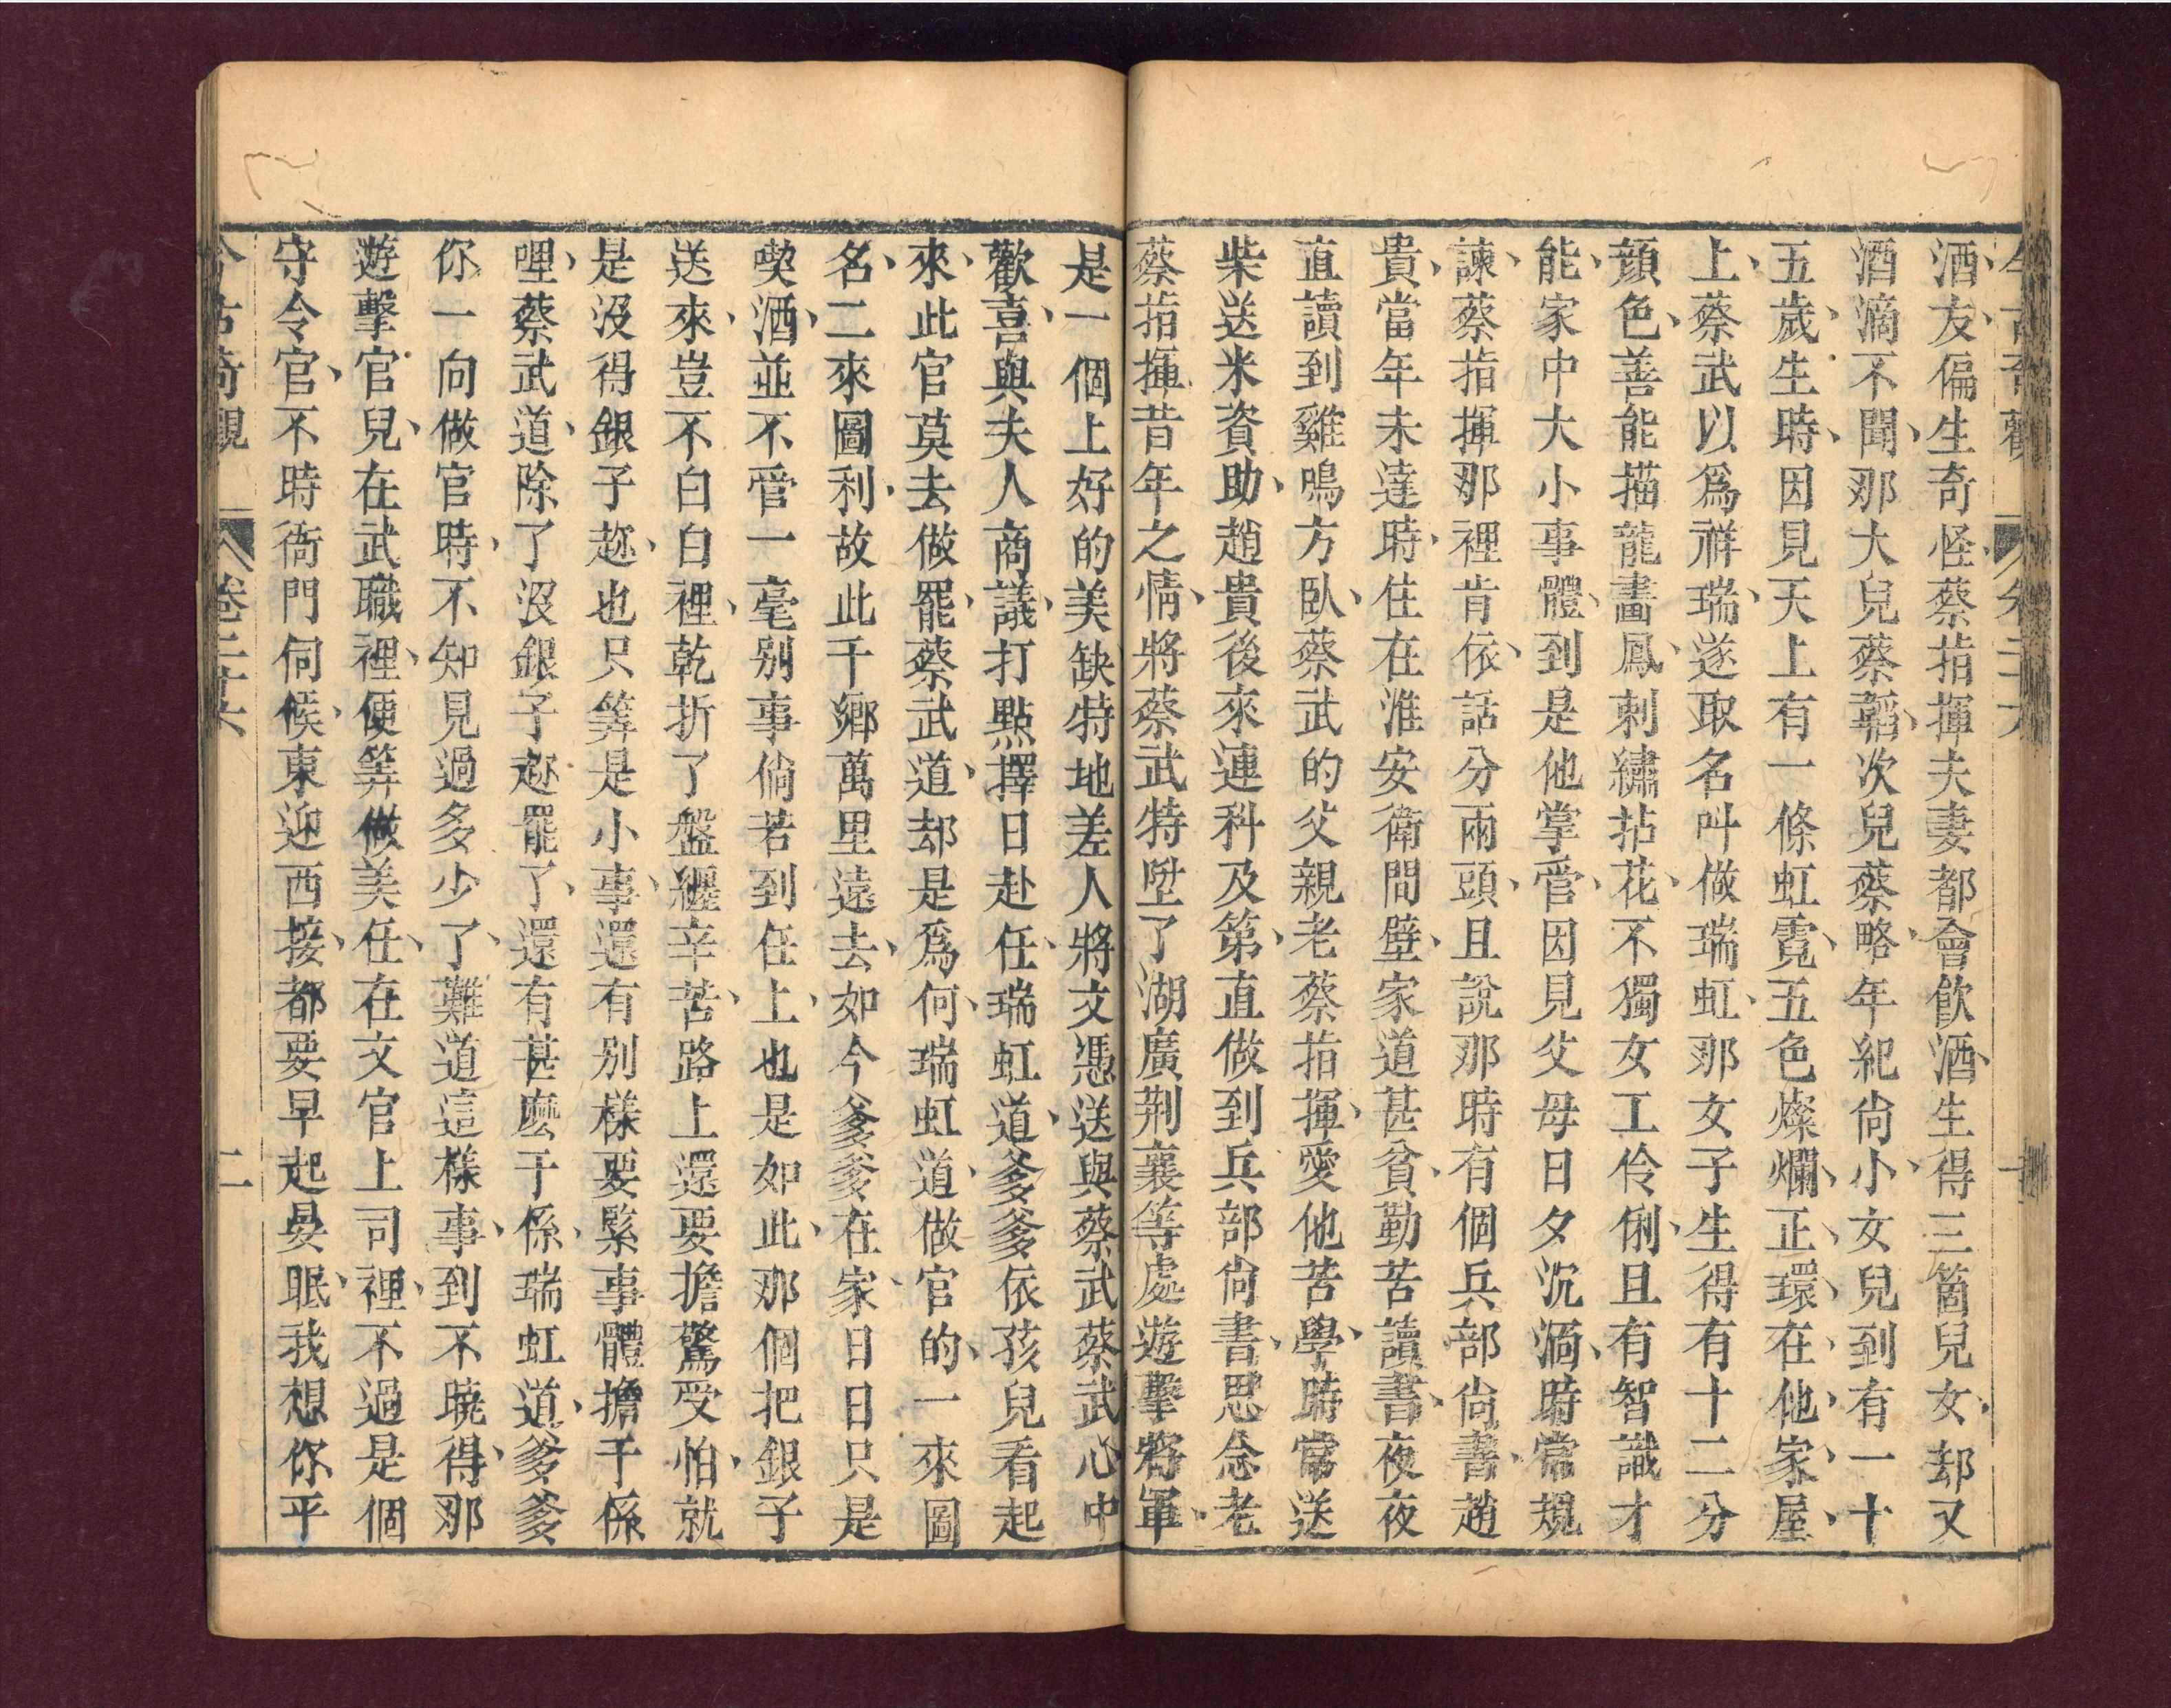 今古奇觀 卷二十六
酒友、偏生奇怪、蔡指揮夫妻都會飲酒、生得三箇兒女、却又
酒滴不聞、那大兒蔡韜、次兒蔡略、年紀尙小、女兒到有一十
五歲、生時、因見天上有一條虹霓、五色燦爛、正環在他家屋
上、蔡武以爲祥瑞、遂取名叫做瑞虹、那女子生得有十二分
顏色、善能描龍畫鳳、刺繡拈花、不獨女工伶俐、且有智識才
能、家中大小事體、到是他掌管、因見父母日夕沉湎、時常規
諫、蔡指揮那裡肯依、話分兩頭、且說那時有個兵部尙書、趙
貴、當年未達時、住在淮安衛間壁、家道甚貧、勤苦讀書、夜夜
直讀到雞鳴方臥、蔡武的父親老蔡指揮、愛他苦學、時常送
柴送米資助、趙貴後來連科及第、直做到兵部尙書、思念老
蔡指揮昔年之情、將蔡武特陞了湖廣荆襄等處遊擊將軍、
是一個上好的美缺特地差人將文憑送與蔡武蔡武心中
歡喜、與夫人商議、打點擇日赴任、瑞虹道、爹爹依孩兒看起
來、此官莫去做罷、蔡武道、却是爲何、瑞虹道、做官的、一來圖
名、二來圖利、故此千鄉萬里遠去、如今爹爹在家、日日只是
喫酒、並不管一毫别事倘若到任上、也是如此、那個把銀子
送來、豈不白白裡、乾折了盤纏辛苦、路上還要擔驚受怕、就
是沒得銀子趂、也只筭是小事、還有别樣要緊事體擔干係
哩、蔡武道、除了沒銀子趂罷了、還有甚麽干係、瑞虹道、爹爹
你一向做官時、不知見過多少了、難道這樣事、到不曉得、那
遊擊官兒、在武職裡、便筭做美任、在文官上司裡、不過是個
守令官、不時衙門伺候、東迎西接、都要早起晏眠、我想你平
今古奇觀 卷二十六 二